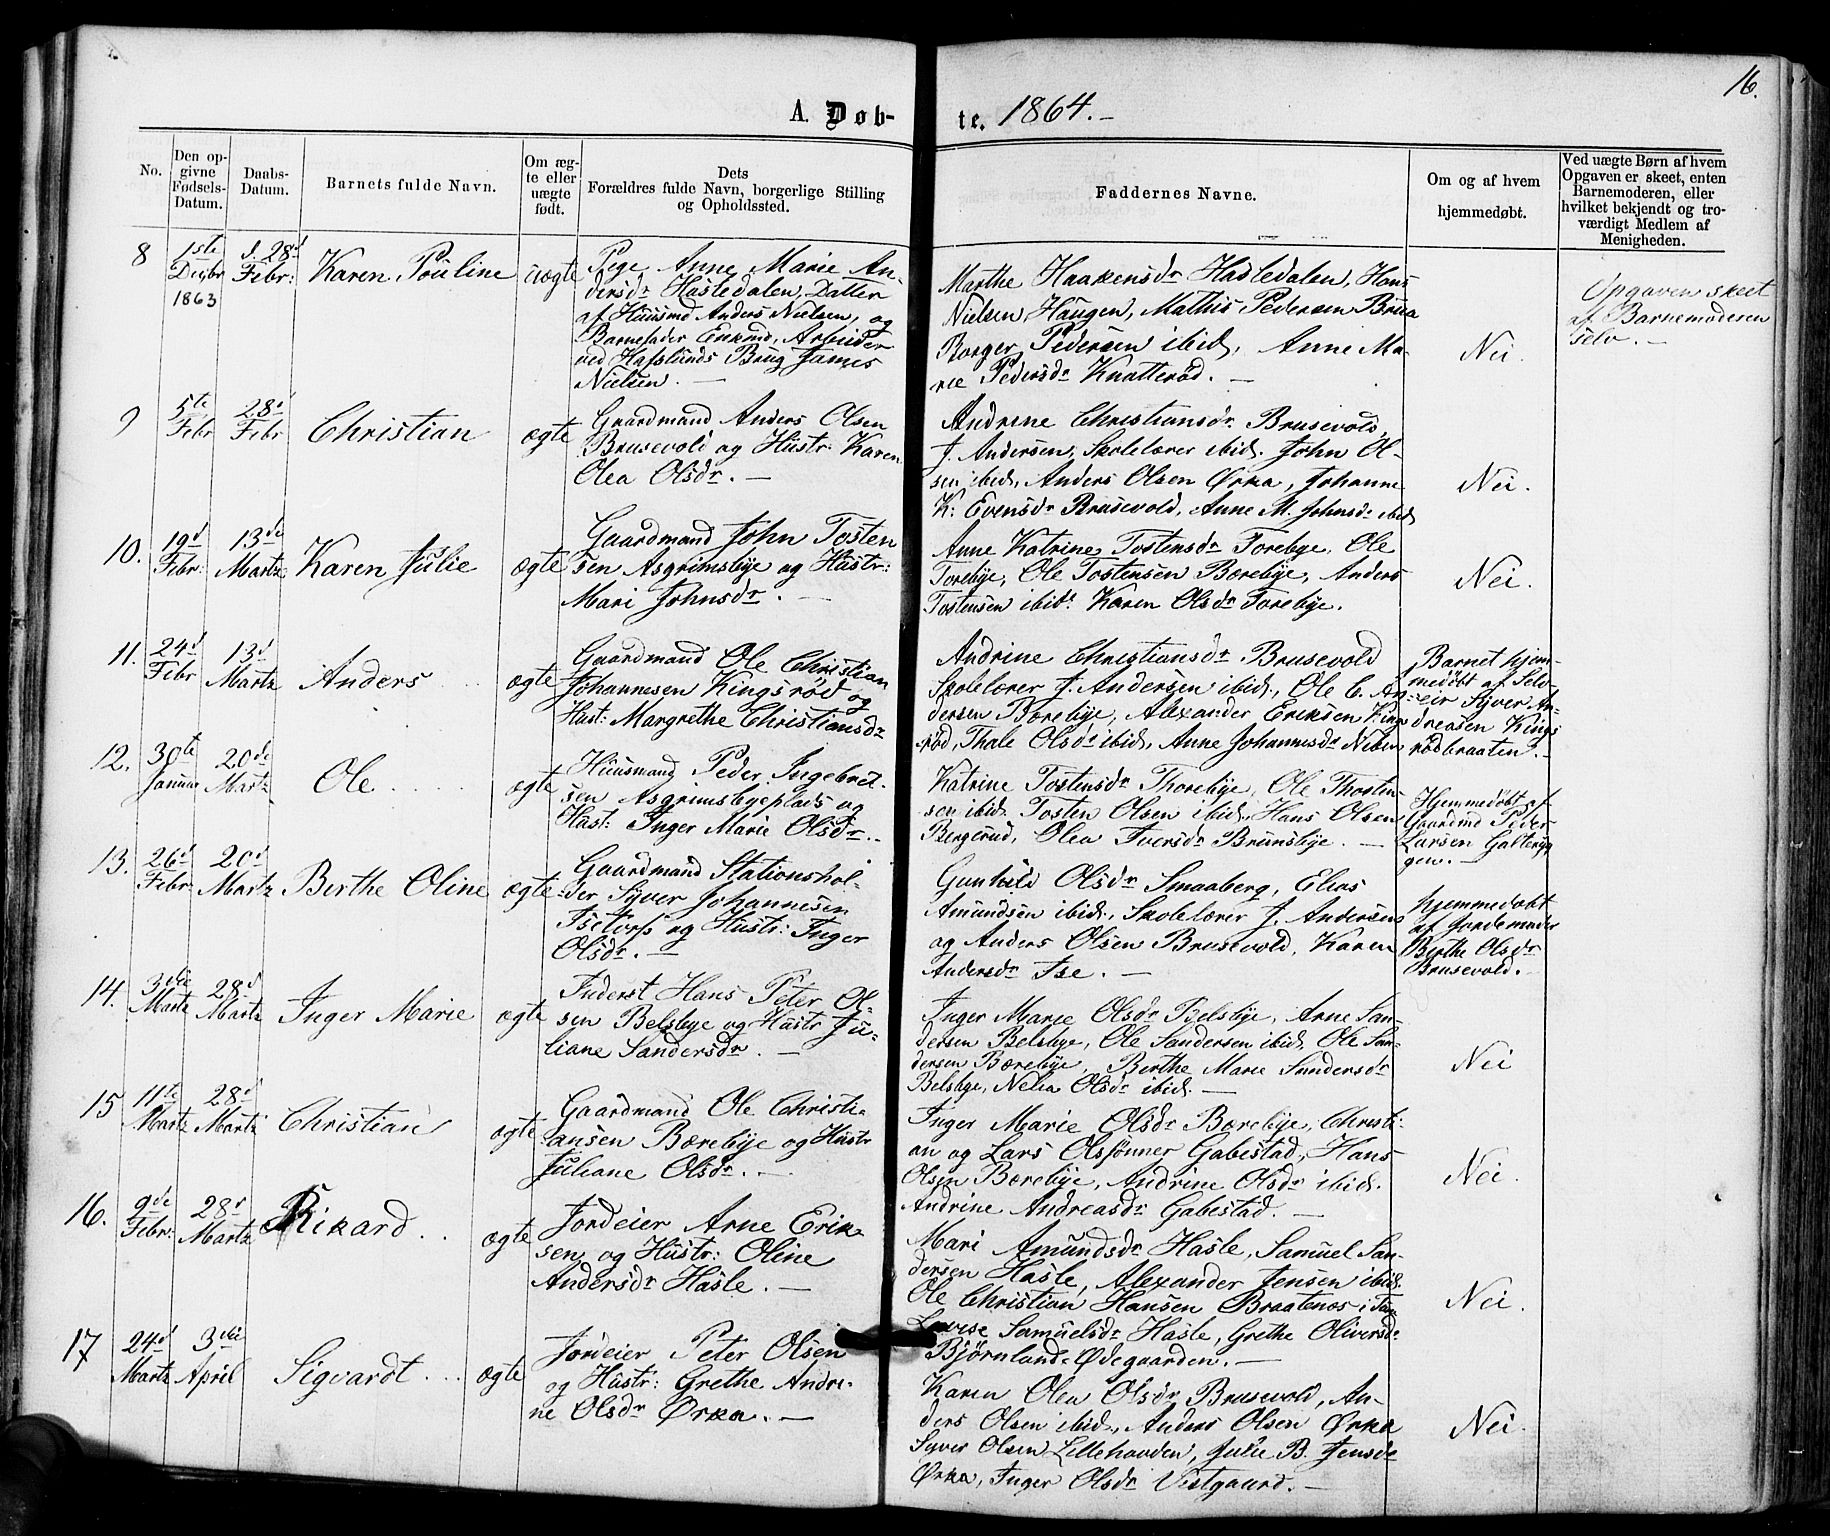 16.
A. Døb-
te. 1864.-
No.
Den op-
givne
Fødsels-
Datum.
Daabs-
Datum.
Barnets fulde Navn.
Om æg-
te eller
uægte
født.
Dets
Forældres fulde Navn, borgerlige Stilling
og Opholdssted.
Faddernes Navne.
Om og af hvem
hjemmedøbt.
Ved uægte Børn af hvem
Opgaven er skeet, enten
Barnemoderen, eller
hvilket bekjendt og tro-
værdigt Medlem af
Menigheden.
8
1ste
Decbr
1863
d. 28d
Febr:
Karen Pouline
uægte
Pige Anne Marie An-
dersdr Hasledalen, Datter
af Huusmd Anders Nielsen, og
Barnefader Enkmd, Arbeider
ved Hafslunds Brug James
Nielsen. —
Marthe Haakensdr Hasledalen, Hans
Nielsen Haugen, Mathis Pedersen Brua
Borger Pedersen ibid, Anne Ma-
rie Pedersdr Knatterød. —
Nei.
Opgaven skeet
af Barnemoderen
selv. —
9
5te
Febr
28d
Febr
Christian
ægte
Gaardmand Anders Olsen
Brusevold og Hustr: Karen
Olea Olsdr. —
Andrine Christiansdr Brusevold,
J. Andersen, Skolelærer ibid. John Ol-
sen ibid, Anders Olsen Ørka, Johanne
K: Evensdr Brusevold, Anne M. Johnsdr ibid
Nei.
10.
19d
Febr:
13de
Martz
Karen Julie
ægte
Gaardmand John Tosten
sen Asgrimsbye og Hustr:
Mari Johnsdr. —
Anne Katrine Tostensdr Torebye, Ole
Torebye, Ole Tostensen Bærebye, Anders
Tostensen ibid: Karen Olsdr Torebye.
Nei.
11.
24d
Febr
13d
Martz
Anders
ægte
Gaardmand Ole Christian
Johannesen Kingsrød og
Hust: Margrethe Christiansdr
Andrine Christiansdr Brusevold
Skolelærer J. Andersen ibid, Ole C. An-
dersen Bærebye, Alexander Eriksen Kings
rød, Thale Olsdr ibid, Anne Johannesdr
Barnet hjem-
medøbt af Selv-
eier Syver An-
dreasen Kings
rødbraaten. —
12.
30te
Januar
20de
Martz
Ole
ægte
Huusmand Peder Ingebret-
sen Asgrimsbyeplads og
Hust: Inger Marie Olsdr. -
Katrine Tostensdr Thorebye, Ole Thosten-
sen ibid. Tosten Olsen ibid, Hans Olsen
Bergerud, Olea Iversdr Brunsbye. —
Hjemmedøbt af
Gaardmd Peder
Larsen Galteryg
gen. —
13.
26d
Febr.
20d
Martz
Berthe Oline
ægte
Gaardmand Stationshol-
der Syver Johannesen
Isetorp og Hustr: Inger
Olsdr. —
Gunhild Olsdr Smaaberg, Elias
Amundsen ibid, Skolelærer J. Andersen
og Anders Olsen Brusevold, Karen
Andersdr Ise. —
hjemmedøbt
af Jordemoder
Berthe Olsdr
Brusevold. —
14.
3die
Martz
28d
Martz
Inger Marie
ægte
Inderst Hans Peter Ol-
sen Belsbye og Hustr Ju-
liane Sandersdr. —
Inger Marie Olsdr Belsbye, Arne San-
dersen Belsbye, Ole Sandersen ibid, Ole San-
dersen Bærebye, Berthe Marie Sandersdr
Belsbye, Nelia Olsdr ibid. —
Nei
15
11te
Martz
28d
Martz
Christian
ægte
Gaardmand Ole Christi-
ansen Bærebye og Hustr
Juliane Olsdr. —
Inger Marie Olsdr Bærebye, Christi-
an og Lars Olssønner Gabestad, Hans
Olsen Bærebye, Andrine Olsdr ibid.
Andrine Andreasdr Gabestad. —
Nei.
16.
9de
Febr:
28d
Martz
Rikard
ægte
Jordeier Arne Erik-
sen og Hustr: Oline
Andersdr Hasle. —
Mari Amundsdr Hasle, Samuel San-
dersen Hasle, Alexander Jensen ibid.
Ole Christian Hansen Braatenes i
Lovise Samuelsdr Hasle, Grethe Oliversdr
Bjørnland-Ødegaarden. —
Nei.
17
24d
Martz
3die
April
Sigvardt
ægte
Jordeier Peter Olsen
og Hustr: Grethe Andri-
ne Olsdr Ørka. —
Karen Olea Olsdr Brusevold, An-
ders Olsen ibid, Anders Olsen Ørka
Syver Olsen Lillehavden, Julie B. Jensdr
Ørka, Inger Olsdr Vestgaard. —
Nei.